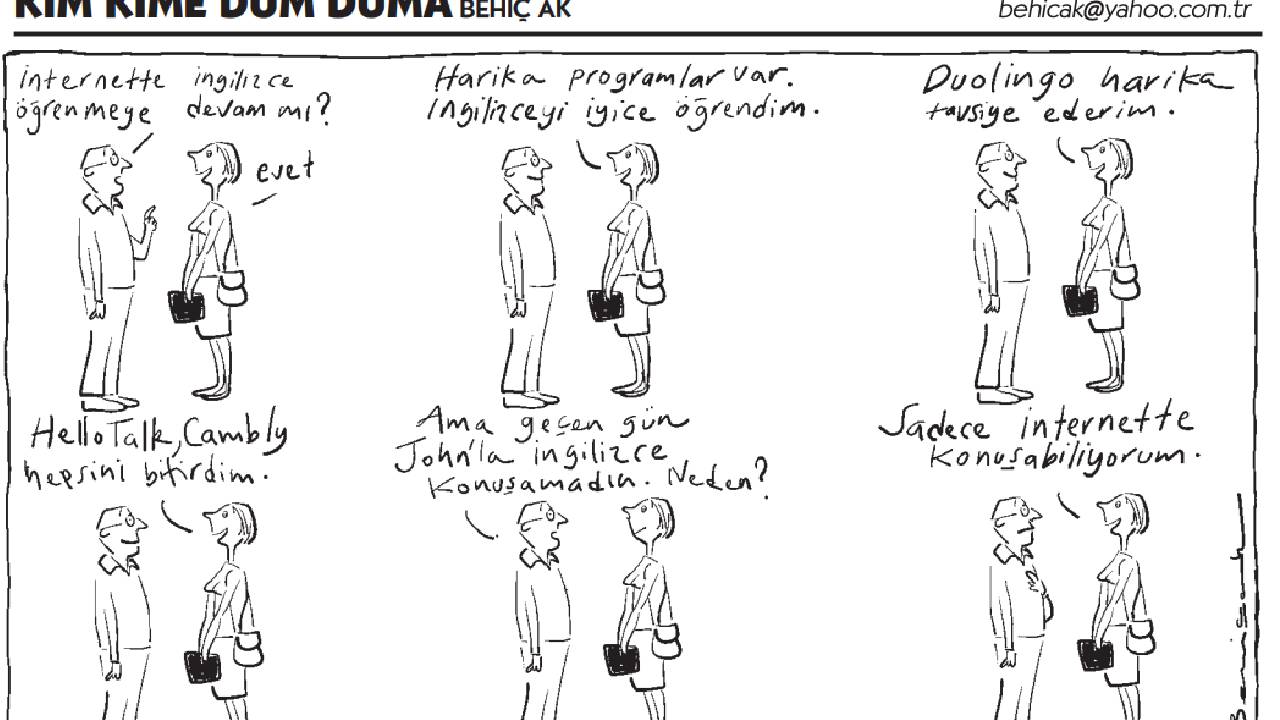 KİM KİME DUM DUMA BEHİÇ AK
behicak@yahoo.com.tr
internette ingilizce
öğrenmeye devam mı?
evet
Harika programlar var.
İngilizceyi iyice öğrendim.
Duolingo harika
tavsiye ederim.
HelloTalk, Cambly
hepsini bitirdim.
Ama geçen gün
John'la ingilizce
konuşamadın. Neden?
Sadece internette
konuşabiliyorum.